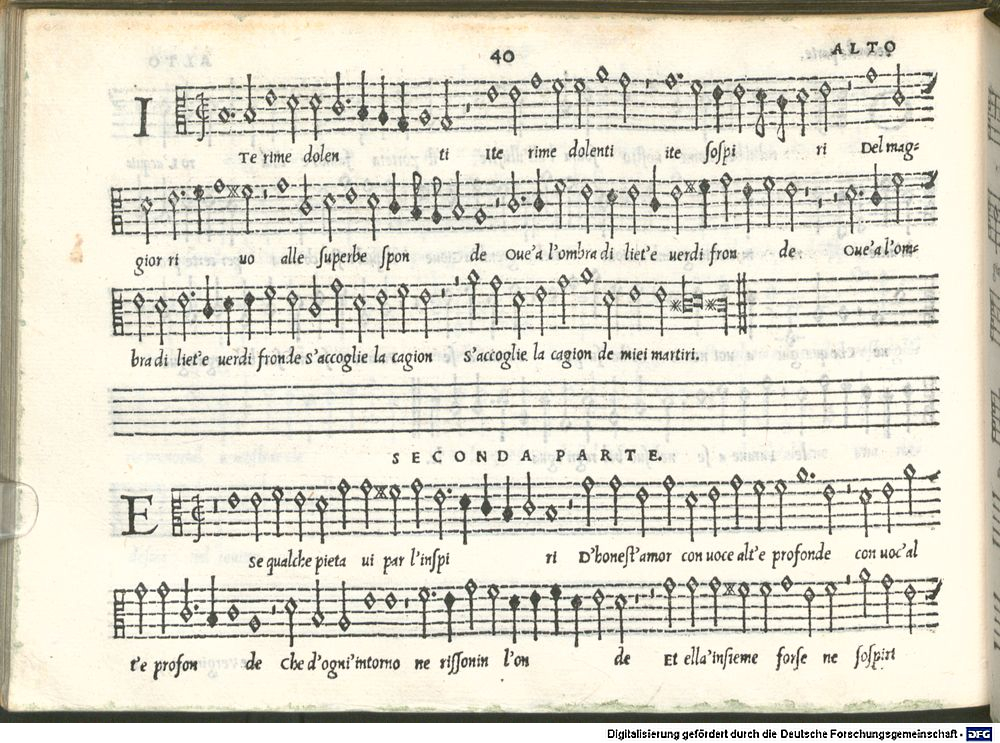 40
ALTO
I Te rime dolen ti Ite rime dolenti ite sospi ri Del mag=
gior ri uo alle superbe spon de Oue'a l'ombra di liet'e uerdi fron de. Oue'a l'om=
bra di liet'e uerdi fronde S'accoglie la cagion S'accoglie la cagion de miei martiri.
SECONDA PARTE.
E Se qualche pieta ui par l'inspi ri D'honest'amor con uoce alt'e profonde con uoc'al
t'e profon de Che d'ogni'intorno ne rissonin l'on de Et ella'insieme forse ne sospiri
Digitalisierung gefördert durch die Deutsche Forschungsgemeinschaft - DFG